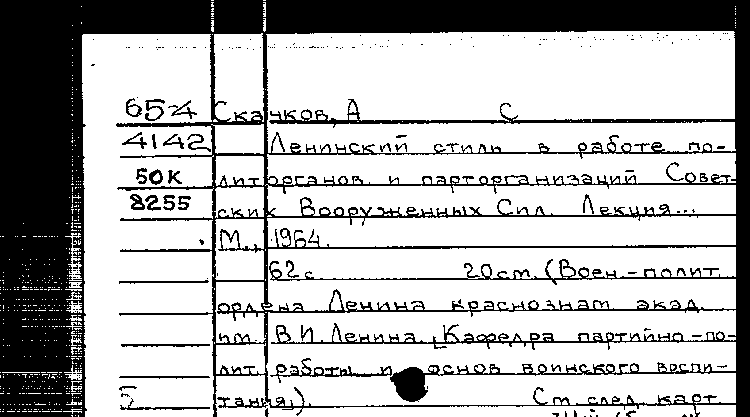 654 Скачков, А С
4142 Ленинский стиль в работе по-
50К литорганов и парторганизаций Совет-
8255 ских Вооруженных Сил. Лекция...
М., 1964.
62с. 20см. (Воен.-полит.
ордена Ленина краснознам. акад.
им. В.И. Ленина. Кафедра партийно-по-
лит. работы и основ воинского воспи-
5 тания). См. след. карт.